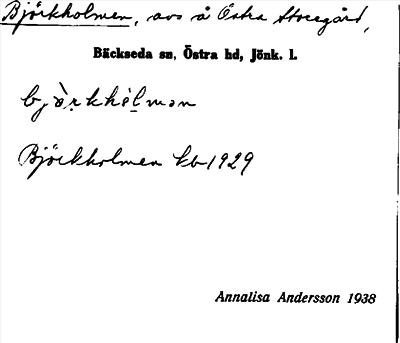 Björkholmen, avs å Östra Storegård,
Bäckseda sn, Östra hd, Jönk. l.
bjö̀rkhélmən
Björkholmen kb 1929
Annalisa Andersson 1938